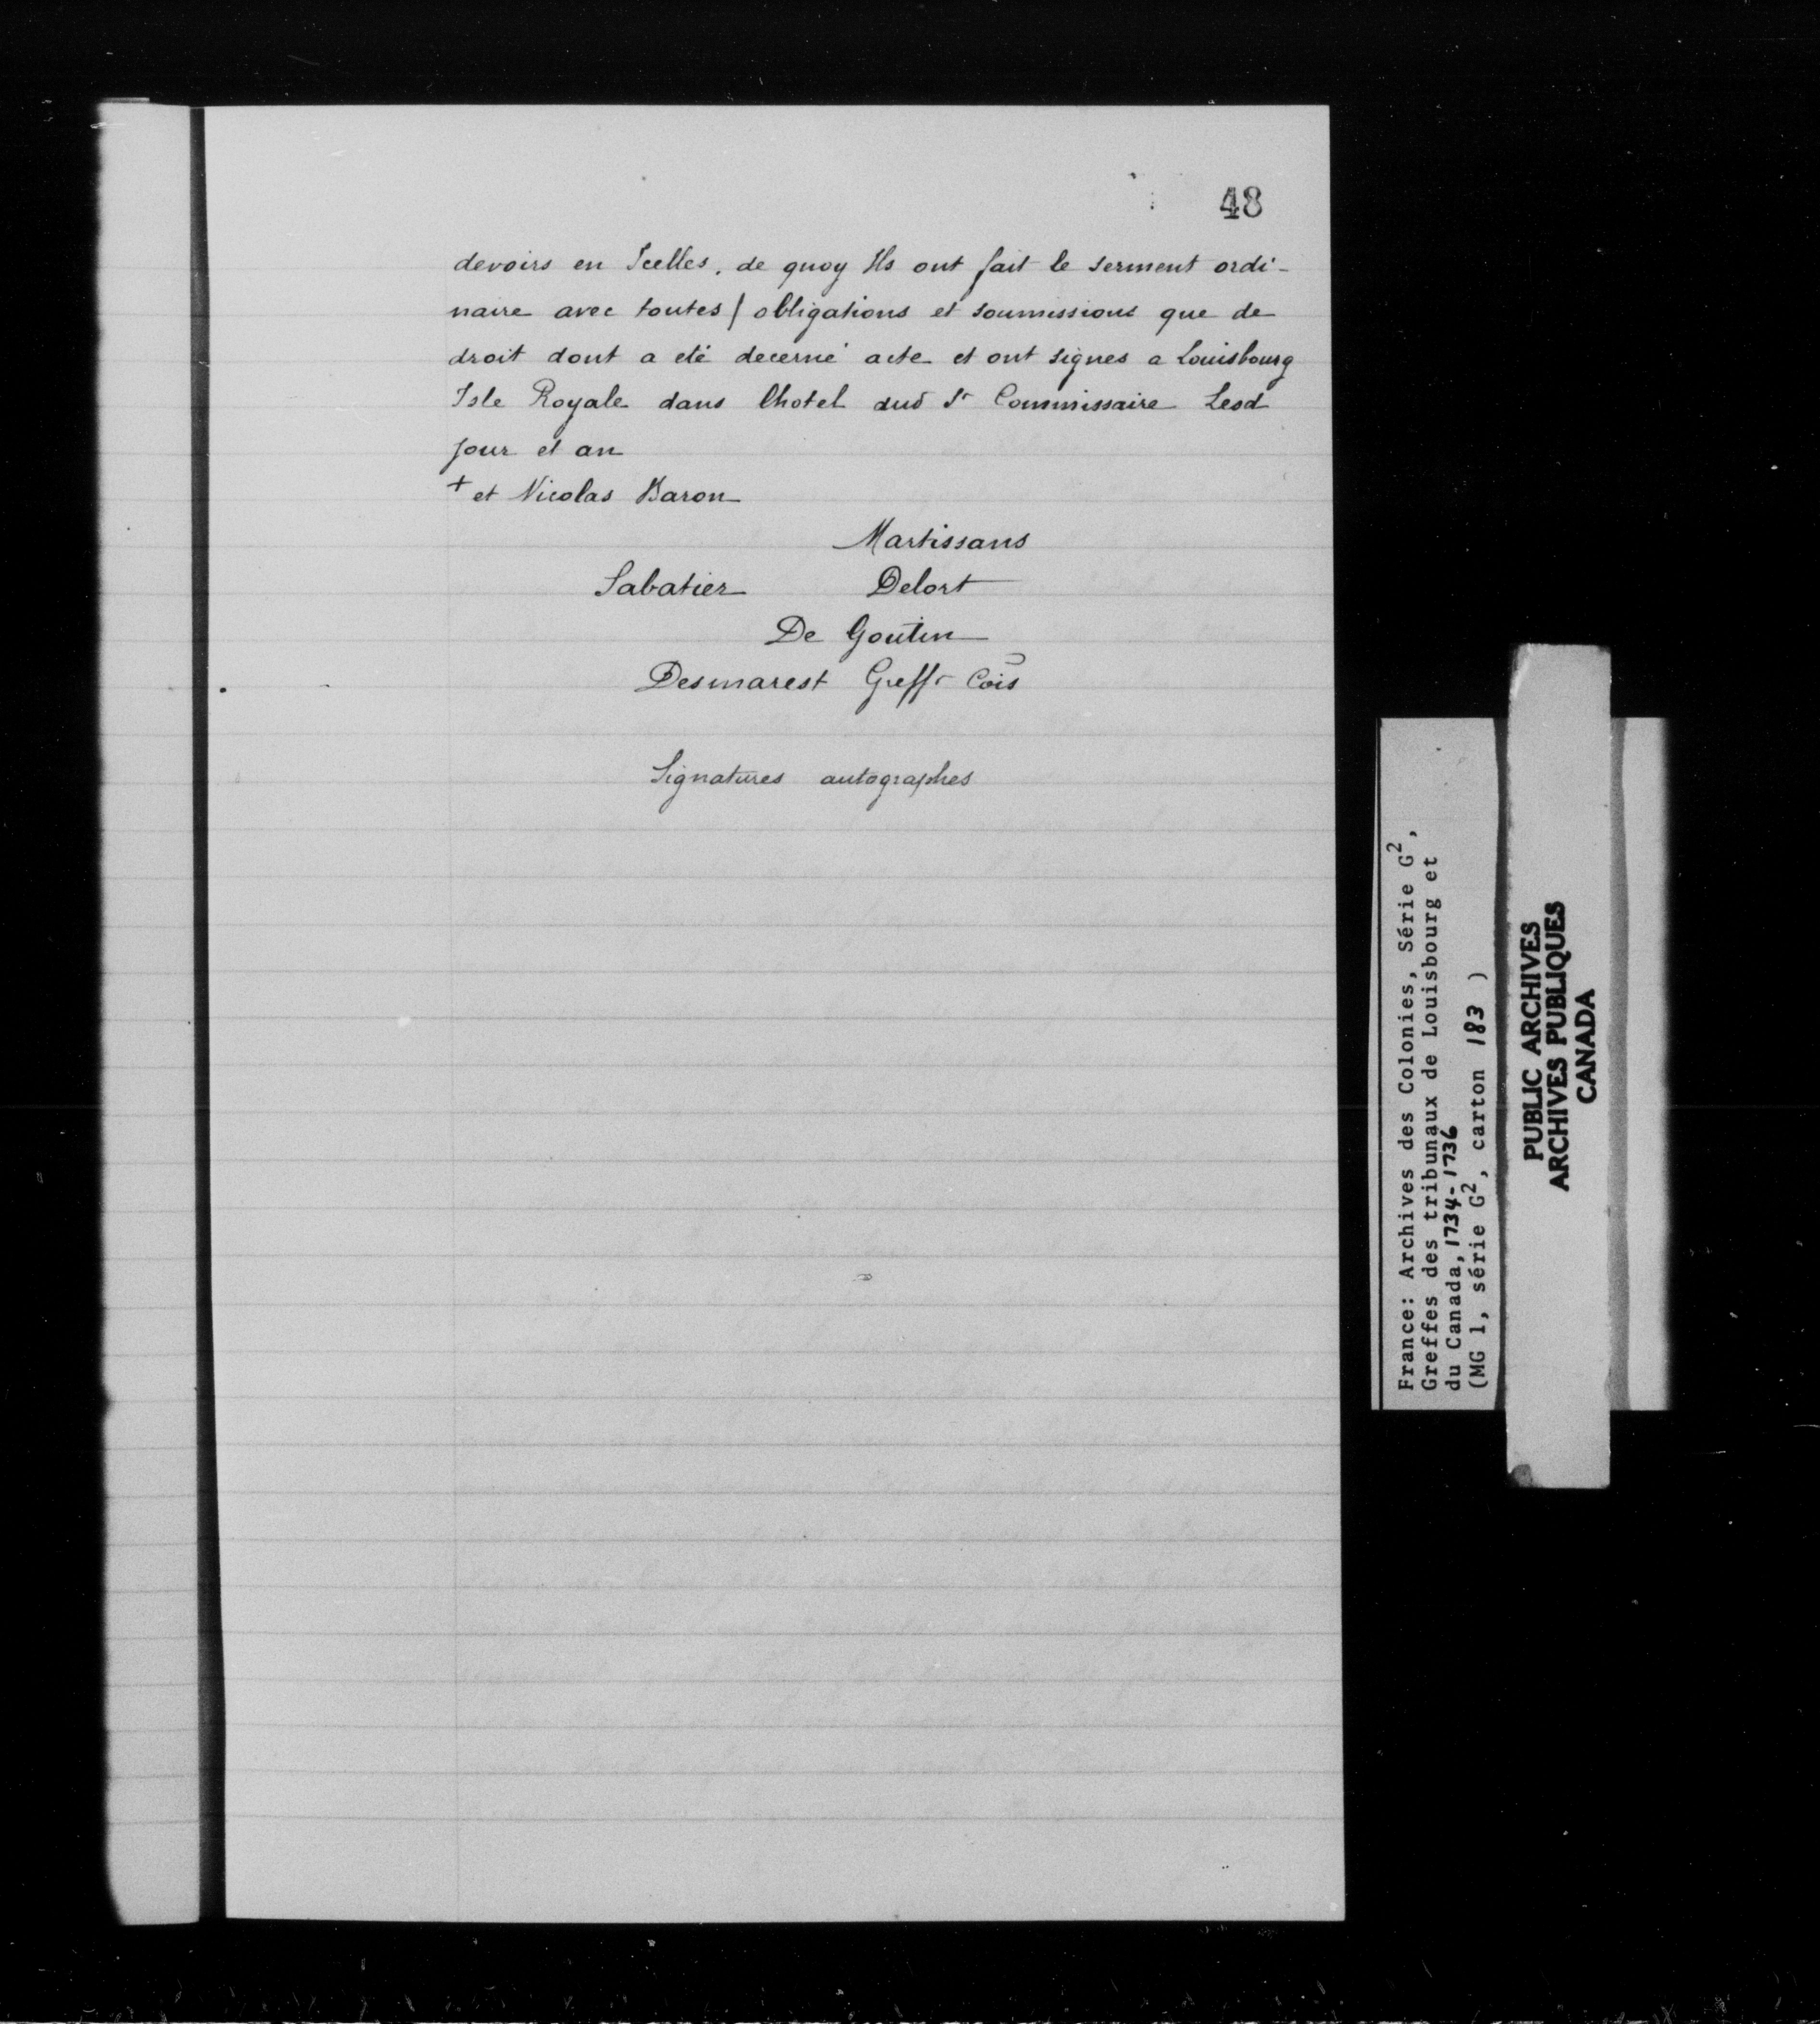 48
devoirs en Icelles, de quoy Ils ont fait le serment ordi-
naire avec toutes / obligations et soumissions que de
droit dont a eté decerné acte et ont signes a Louisbourg
Isle Royale dans lhotel dud Sr Commissaire Lesd
jour et an
+ et Nicolas Baron
Martissans
Sabatier Delort
De Goutin
Desmarest Greffr Cois
Signatures autographes
France: Archives des Colonies, Série G2,
Greffes des tribunaux de Louisbourg et
du Canada, 1734-1736
(MG 1, série G2, carton 183 )
PUBLIC ARCHIVES
ARCHIVES PUBLIQUES
CANADA